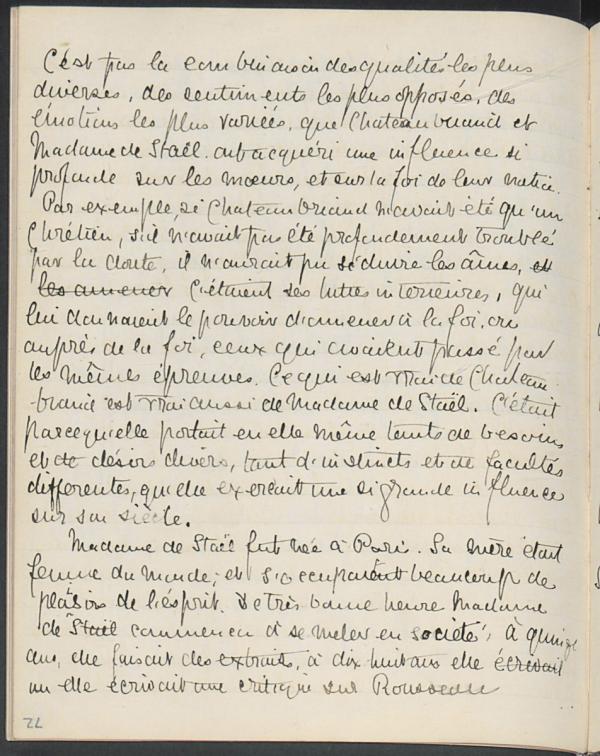 C'est pas la combinaison des qualités les plus
diverses, des sentiments les plus opposés, des
émotions les plus variées, que Chateaubriand et
Madame de Staël ont acquéri une influence si
profonde sur les mœurs, et sur la foi de leur nation.
Par exemple, si Chateaubriand n'avait été qu'un
Chrétien, s'il n'avait pas été profondement troublé
par la doute, il n'aurait pu séduire les âmes, et
les amener C'étaient ses luttes interieures, qui
lui donnaient le pouvoir d'amener à la foi, ou
auprès de la foi, ceux qui avaient passé par
les mêmes épreuves. Ce qui est vrai de Chateau-
briand est vrai aussi de Madame de Staël. C'était
parcequ'elle portait en elle même tants de besoins
et de désirs divers, tant d'instincts et de facultés
differentes, qu'elle exerçait une si grande influence
sur son siècle.
Madame de Staël fut née à Paris. Sa mère était
femme du monde, et s'occuparait beaucoup de
plaisirs de l'ésprit. De très bonne heure Madame
de Staël commença à se meler en société, à quinze
ans, elle faisait des extraits, à dix huit ans elle écrivait
un elle écrivait une critique sur Rousseau
72